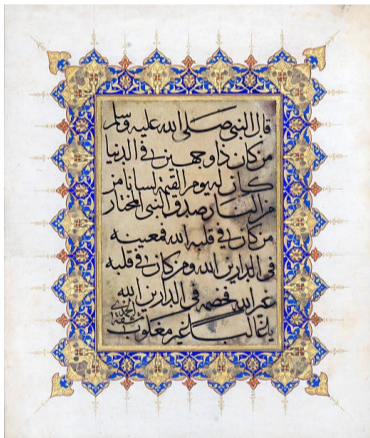 قال النبي صلى الله عليه وسلم
من كان ذا وجهين في الدنيا
كان له يوم القيمة لسانان من
من النار صدق النبي المختار
من كان في قلبه الله فمعينه
في الدارين الله ومن كان في قلبه
غير الله فخصمه في الدارين الله
يا غالبا غير مغلوب